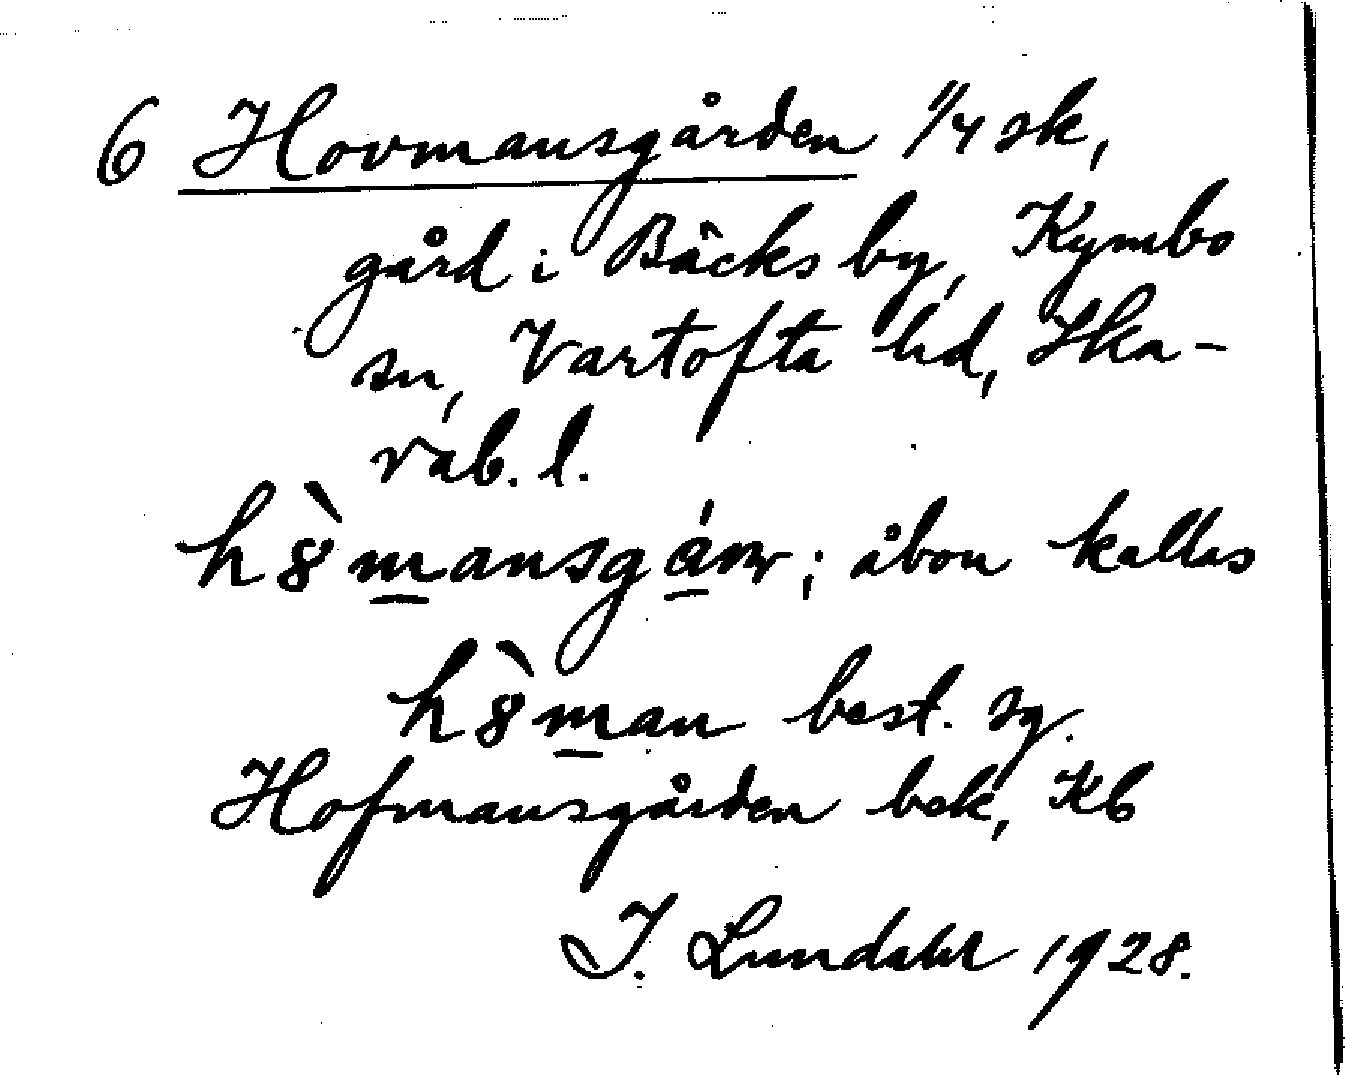 6 Hovmansgården 1/4 sk,
gård i Bäcks by, Kymbo
sn, Vartofta hd, Ska-
rab. l.
h8̀mansgá; åbon kallas
h8̀man best. sg.
Hofmansgården bek, Kb
I. Lundahl 1928.